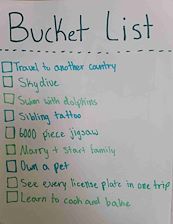 Bucket List
Travel to another country
Skydive
Swim with dolphins
Sibling tattoo
6000 piece jigsaw
Marry + start family
Own a pet
See every license plate in one trip
Learn to cook and bake